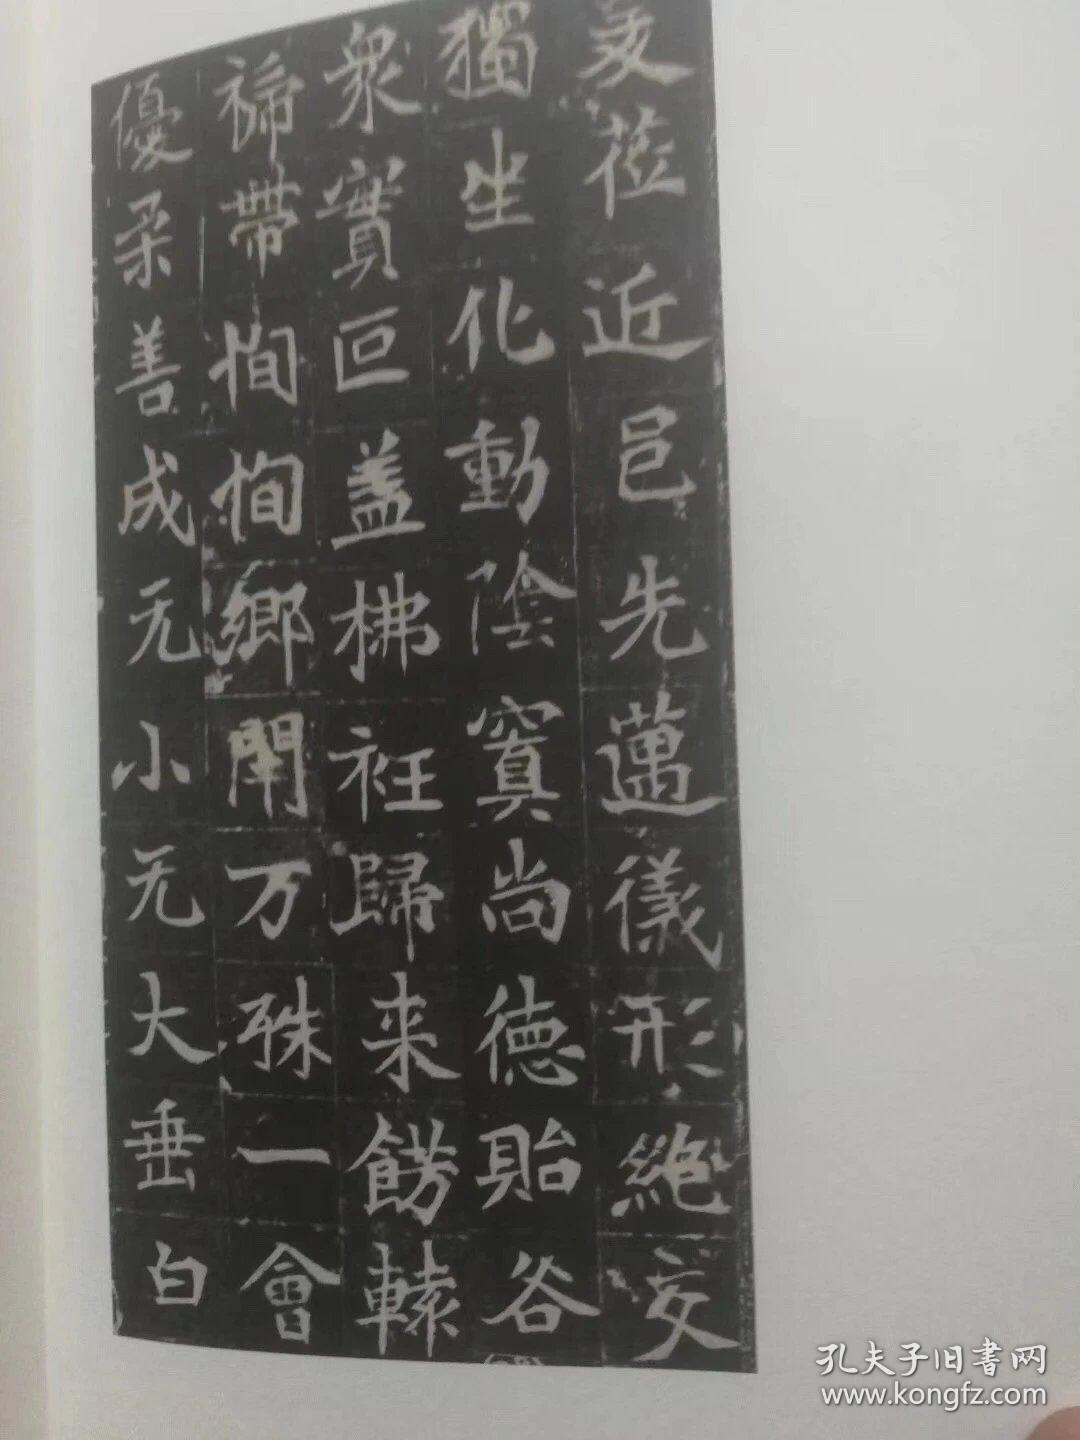 爰莅近邑先邁儀形絶妄
獨坐化動陰窴尚德貽谷
衆實叵蓋梻衽歸来餝轅
裕帶恂恂鄉閈万殊一會
優柔善成无小无大垂白
孔夫子旧書网
www.kongfz.com